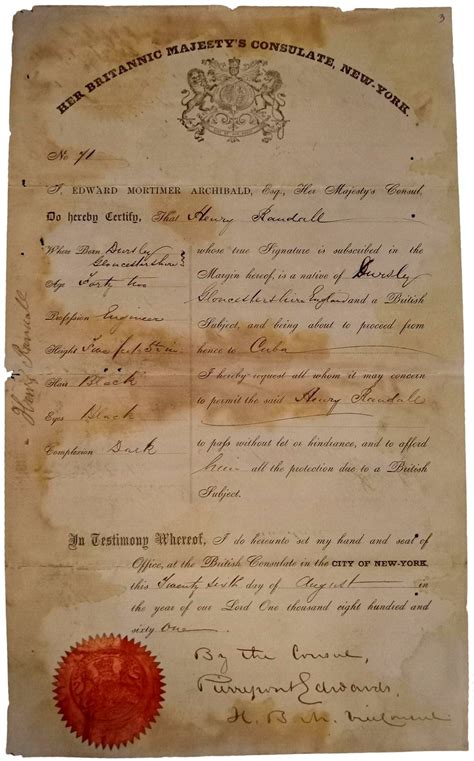 3
HER BRITANNIC MAJESTY'S CONSULATE, NEW-YORK.
No 71
I, EDWARD MORTIMER ARCHIBALD, Esq., Her Majesty's Consul,
Do hereby Certify, That Henry Randall
Where Born Dursley
Gloucestershire
Age Forty two
Profession Engineer
Height Five feet 5½ in
Hair Black
Eyes Black
Complexion Dark
Henry Randall
whose true Signature is subscribed in the
Margin hereof, is a native of Dursley
Gloucestershire England and a British
Subject, and being about to proceed from
hence to Cuba
I hereby request all whom it may concern
to permit the said Henry Randall
to pass without let or hindrance, and to afford
him all the protection due to a British
Subject.
In Testimony Whereof, I do hereunto set my hand and seal of
Office, at the British Consulate in the CITY OF NEW-YORK,
this Twenty sixth day of August in
the year of our Lord One thousand eight hundred and
sixty One
By the Consul,
Pierrepont Edwards,
H. B. M. Vice Consul